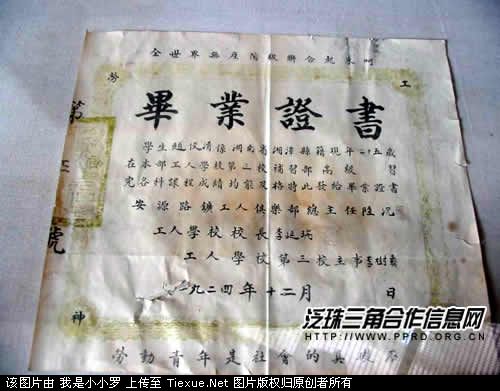 全世界無產階級聯合起來呵
勞 工
畢業證書
學生趙汉清係湖南省湘潭縣籍現年二十五歲
在本部工人學校第三校補習部高級 習
完各科課程成績均能及格特此發給畢業證書
安源路鑛工人俱樂部總主任陸沉
工人學校校長李延瑞
工人學校第三校主事李樹
一九二四年十二月 日
第 號
神
勞動青年是社會的真
泛珠三角合作信息网
WWW.PPRD.ORG.CN
该图片由 我是小小罗 上传至 Tiexue.Net 图片版权归原创者所有